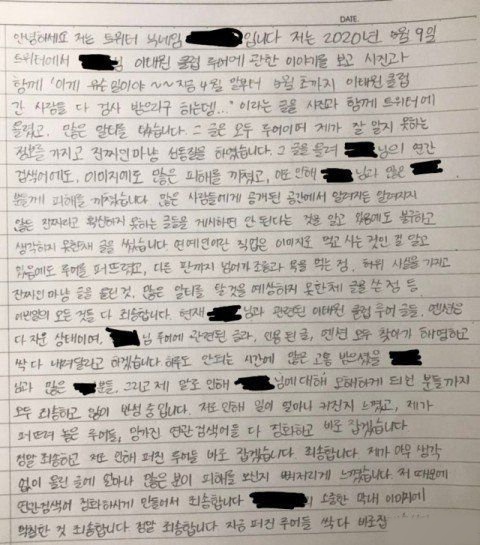 DATE.
안녕하세요 저는 트위터 닉네임 입니다 저는 2020년 5월 9일
트위터에서 님 이태원 클럽 루머에 관한 이야기를 보고 사진과
함께 "이게 무슨 일이야 ~~ 지금 4월 말부터 5월 초까지 이태원 클럽
간 사람들 다 검사 받으라구 하는뎁..." 이라는 글을 사진과 함께 트위터에
올렸고, 많은 알티를 탔습니다. 그 글은 모두 루머이며 제가 잘 알지 못하는
정보를 가지고 진짜인 마냥 선동질을 하였습니다. 그 글을 올려 님의 연관
검색어에도, 이미지에도 많은 피해를 끼쳤고, 이로 인해 님과 많은
분들께 피해를 끼쳤습니다. 많은 사람들에게 공개된 공간에서 알려지든 알려지지
않든 진짜라고 확신하지 못하는 글들을 게시하면 안 된다는 것을 알고 있음에도 불구하고
생각하지 못한채 글을 썼습니다 연예인이란 직업은 이미지로 먹고 사는 것인 걸 알고
있음에도 루머를 퍼뜨렸고, 다른 판까지 넘어가 조롱과 욕을 먹는 점, 허위 사실을 가지고
진짜인 마냥 글을 올린 것, 많은 알티를 탈 것을 예상하지 못한채 글을 쓴 점 등
이번일의 모든 것들 다 죄송합니다. 현재 님과 관련된 이태원 클럽 루머 글들, 멘션은
다 지운 상태이며, 님 루머에 관련된 글과, 인용된 글, 멘션 모두 찾아가 해명하고
싹 다 내려달라고 하겠습니다 하루도 안되는 시간에 많은 고통 받으셨을
님과 많은 분들, 그리고 제 말로 인해 님에 대해 오해하게 되신 분들까지
모두 죄송하고 많이 반성 중입니다. 저로 인해 일이 얼마나 커진지 느꼈고, 제가
퍼뜨려 놓은 루머들, 망가진 연관 검색어들 다 정화하고 바로 잡겠습니다
정말 죄송하고 저로 인해 퍼진 루머들 바로 잡겠습니다. 죄송합니다. 제가 아무 생각
없이 올린 글에 얼마나 많은 분이 피해를 보신지 뼈저리게 느꼈습니다. 저 때문에
연관검색어 정화하시게 만들어서 죄송합니다 의 소중한 막내 이미지에
먹칠한 것 죄송합니다. 정말 죄송합니다 지금 퍼진 루머들 싹 다 바로잡